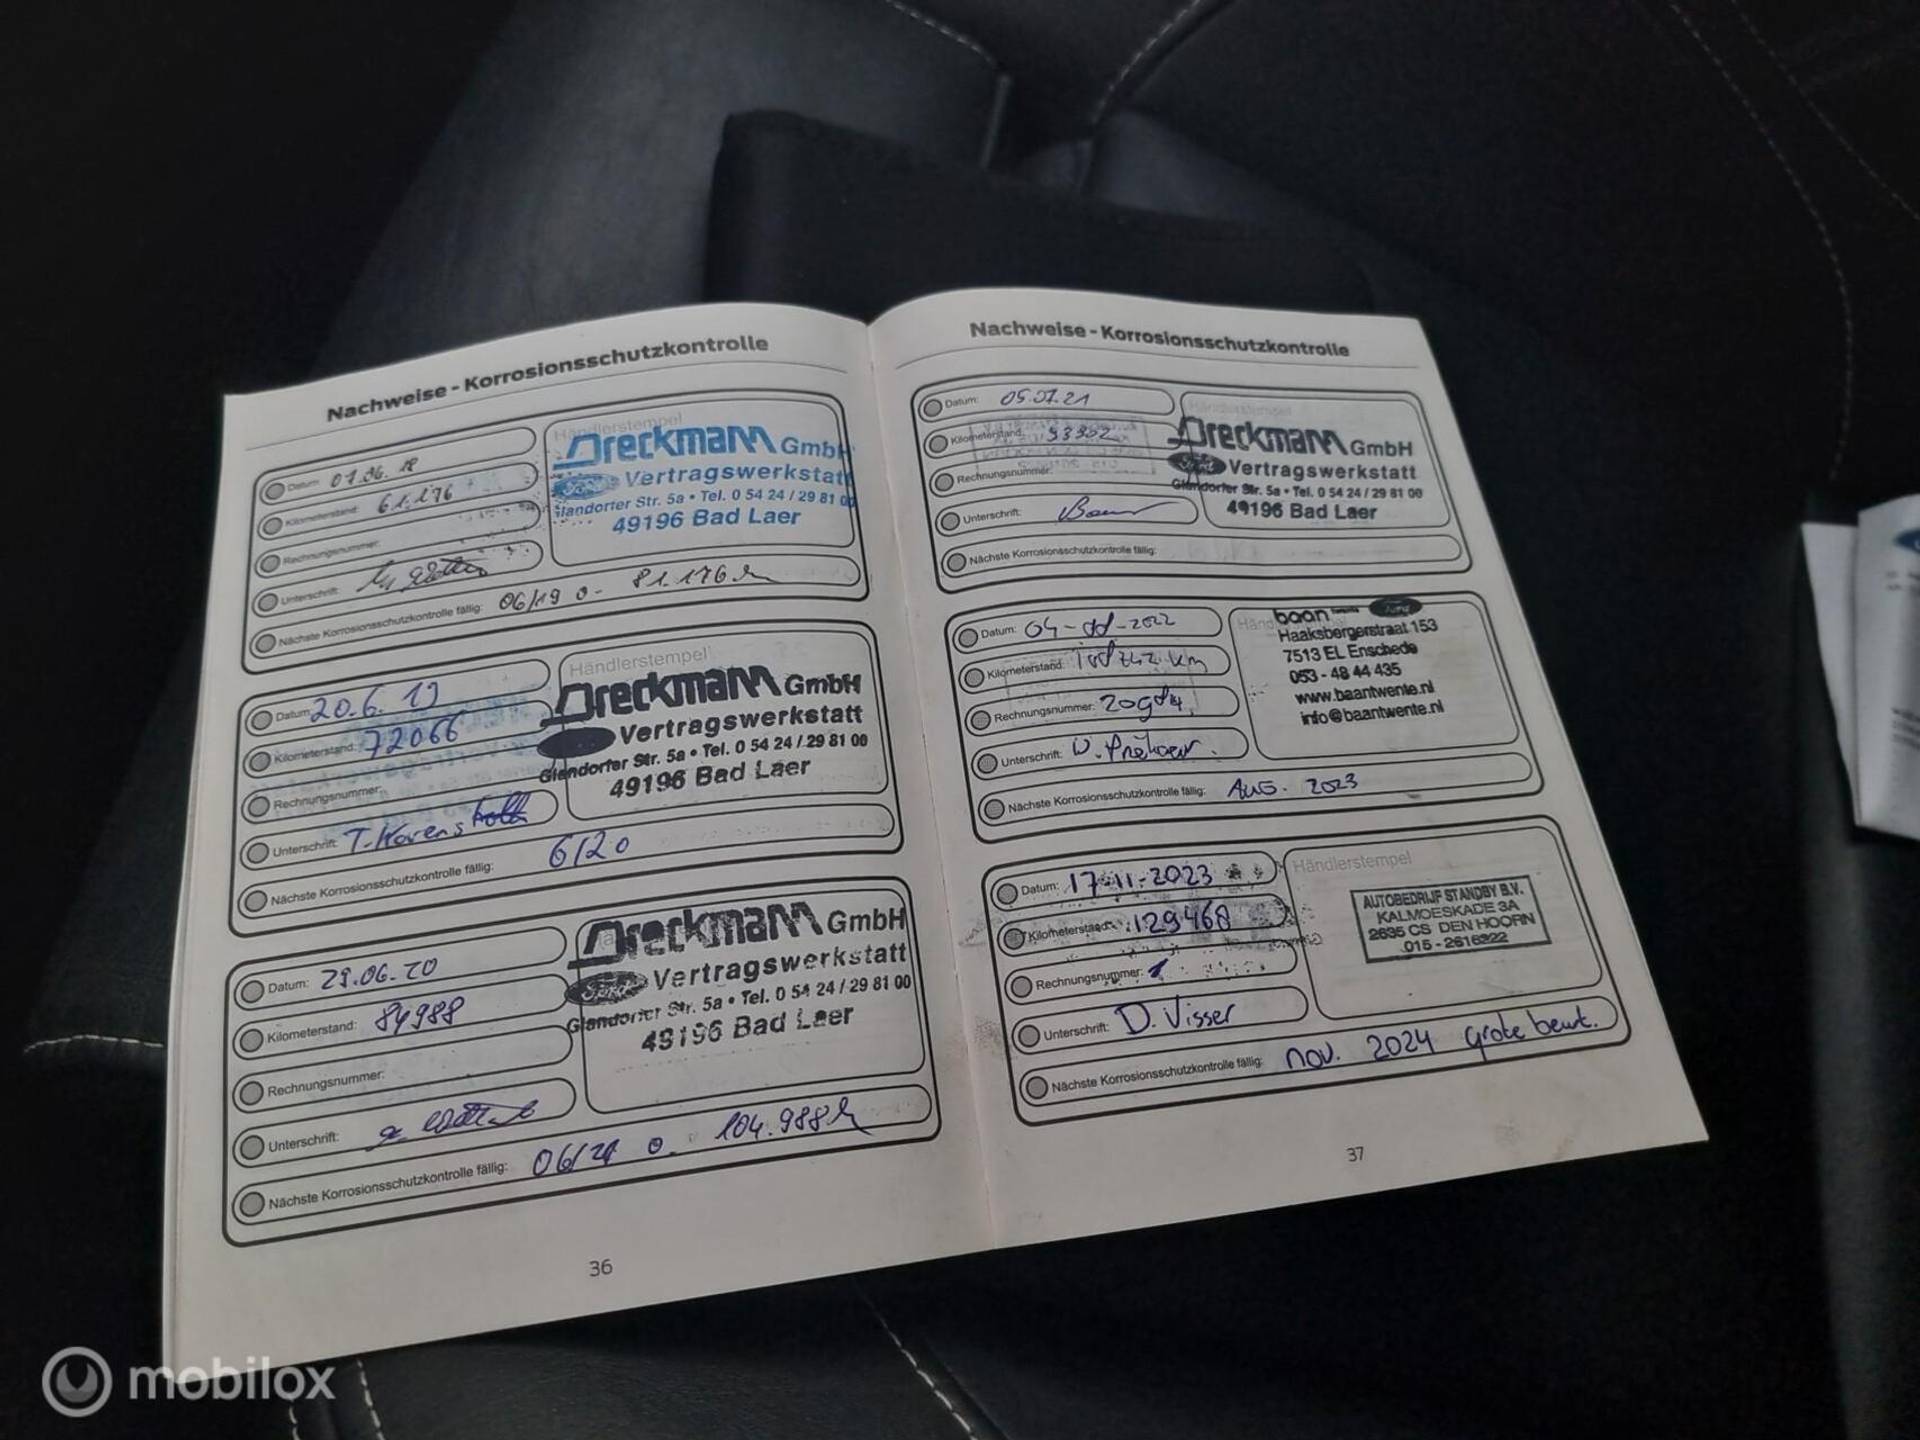 Nachweise - Korrosionsschutzkontrolle
Datum: 07.06.18
Kilometerstand: 61.176
Rechnungsnummer:
Unterschrift:
Nächste Korrosionsschutzkontrolle fällig: 06/19 o- 81.176
Händlerstempel
Dreckmann GmbH
Ford Vertragswerkstatt
Glandorfer Str. 5a • Tel. 0 54 24 / 29 81 00
49196 Bad Laer
Datum: 20.6.19
Kilometerstand: 72066
Rechnungsnummer:
Unterschrift:
Nächste Korrosionsschutzkontrolle fällig: 6/20
Händlerstempel
Dreckmann GmbH
Vertragswerkstatt
Glandorfer Str. 5a • Tel. 0 54 24 / 29 81 00
49196 Bad Laer
Datum: 29.06.20
Kilometerstand: 84988
Rechnungsnummer:
Unterschrift:
Nächste Korrosionsschutzkontrolle fällig: 06/21 o. 104.988
Dreckmann GmbH
Ford Vertragswerkstatt
Glandorfer Str. 5a • Tel. 0 54 24 / 29 81 00
49196 Bad Laer
36
Nachweise - Korrosionsschutzkontrolle
Datum: 05.07.21
Kilometerstand:
Rechnungsnummer:
Unterschrift:
Nächste Korrosionsschutzkontrolle fällig:
Händlerstempel
Dreckmann GmbH
Ford Vertragswerkstatt
Glandorfer Str. 5a • Tel. 0 54 24 / 29 81 00
49196 Bad Laer
Datum: 04-08-2022
Kilometerstand: km
Rechnungsnummer:
Unterschrift:
Nächste Korrosionsschutzkontrolle fällig: Aug. 2023
baan Twente Ford
Haaksbergerstraat 153
7513 EL Enschede
053 - 48 44 435
www.baantwente.nl
info@baantwente.nl
Datum: 17-11-2023
Kilometerstand: 129468
Rechnungsnummer: 1
Unterschrift: D. Visser
Nächste Korrosionsschutzkontrolle fällig: nov. 2024 grote beurt.
Händlerstempel
AUTOBEDRIJF STANDBY B.V.
KALMOESKADE 3A
2635 CS DEN HOORN
015 - 2616322
37
mobilox